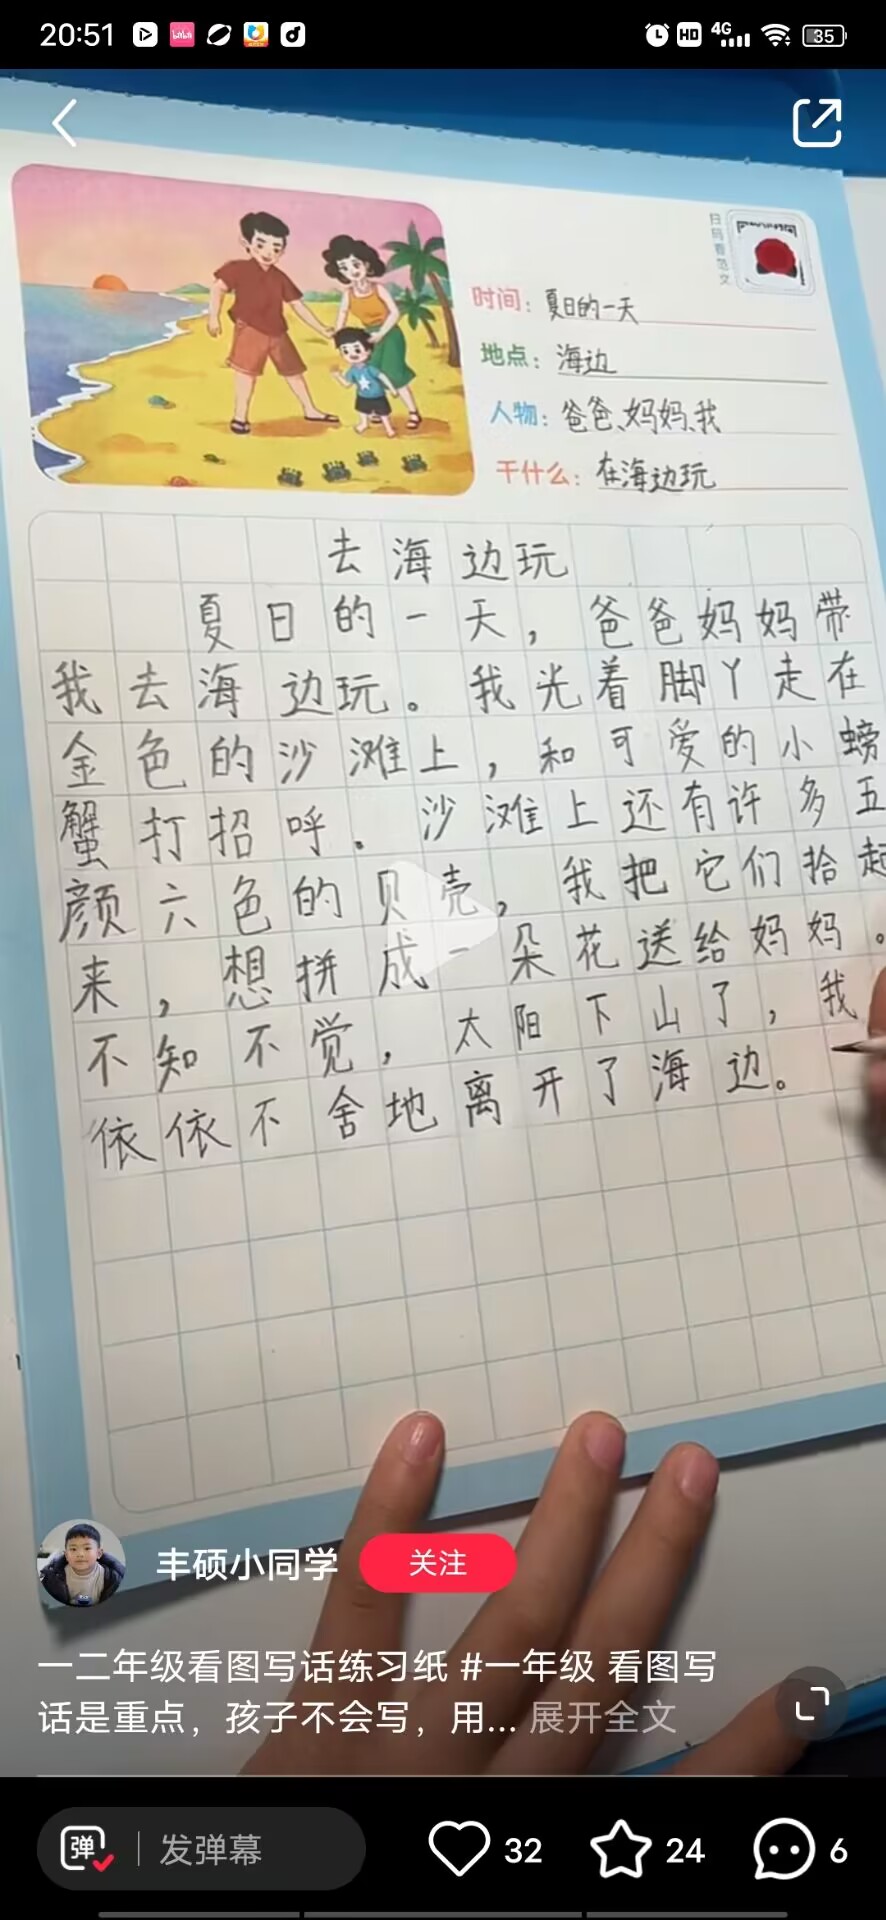 20:51
HD
4G
35
扫码看范文
时间：夏日的一天
地点：海边
人物：爸爸、妈妈、我
干什么：在海边玩
去海边玩
夏日的一天，爸爸妈妈带
我去海边玩。我光着脚丫走在
金色的沙滩上，和可爱的小螃
蟹打招呼。沙滩上还有许多五
颜六色的贝壳，我把它们拾起
来，想拼成一朵花送给妈妈。
不知不觉，太阳下山了，我
依依不舍地离开了海边。
丰硕小同学
关注
一二年级看图写话练习纸 #一年级 看图写
话是重点，孩子不会写，用... 展开全文
弹
发弹幕
32
24
6